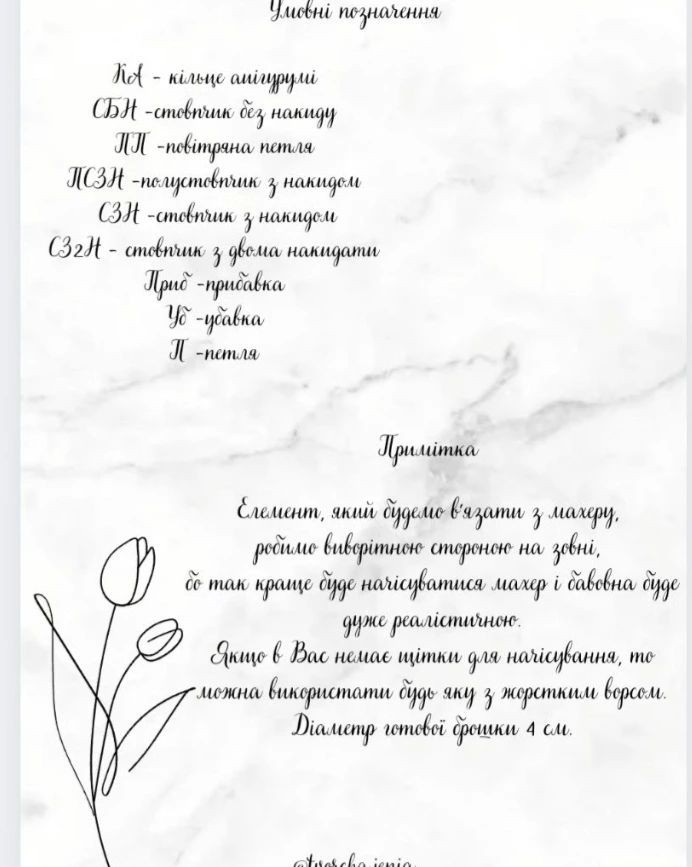 Умовні позначення
КА - кільце амігурумі
СБН -стовпчик без накиду
ПП -повітряна петля
ПСЗН -полустовпчик з накидом
СЗН -стовпчик з накидом
СЗ2Н - стовпчик з двома накидами
Приб -прибавка
Уб -убавка
П -петля
Примітка
Елемент, який будемо в'язати з махеру,
робимо виворітною стороною на зовні,
бо так краще буде начісуватися махер і бавовна буде
дуже реалістичною.
Якщо в Вас немає щітки для начісування, то
можна використати будь яку з жорстким ворсом.
Діаметр готової брошки 4 см.